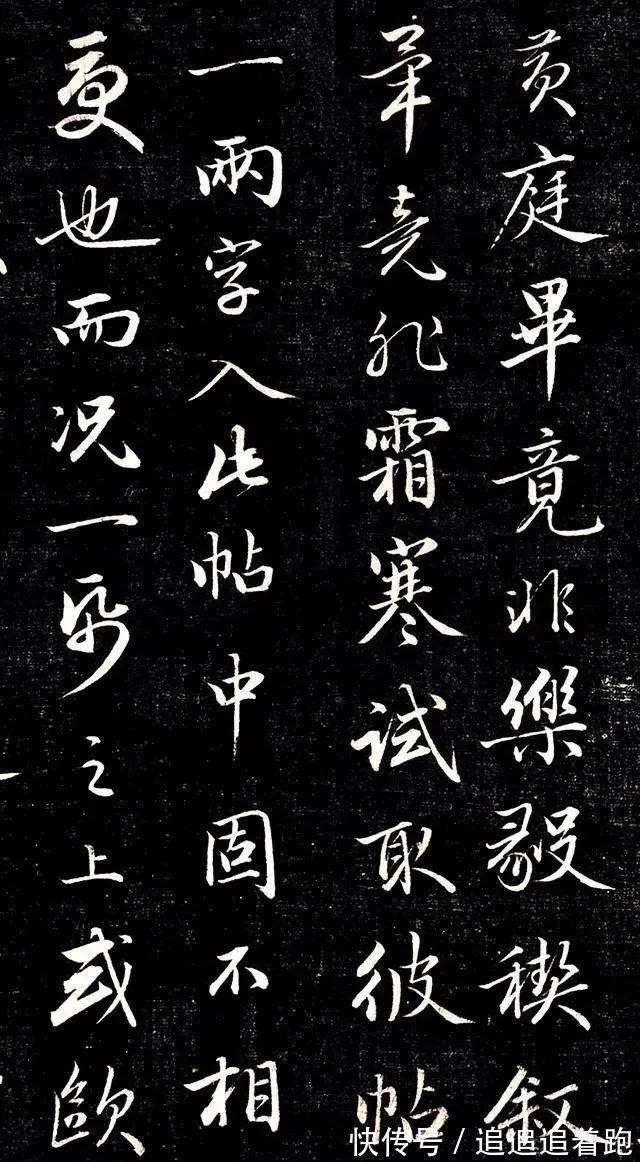 黄庭畢竟非樂毅禊叙
畢竟非霜寒試取彼帖
一兩字入此帖中固不相
更也而况一帋之上或歐
快传号 / 追遇追着跑